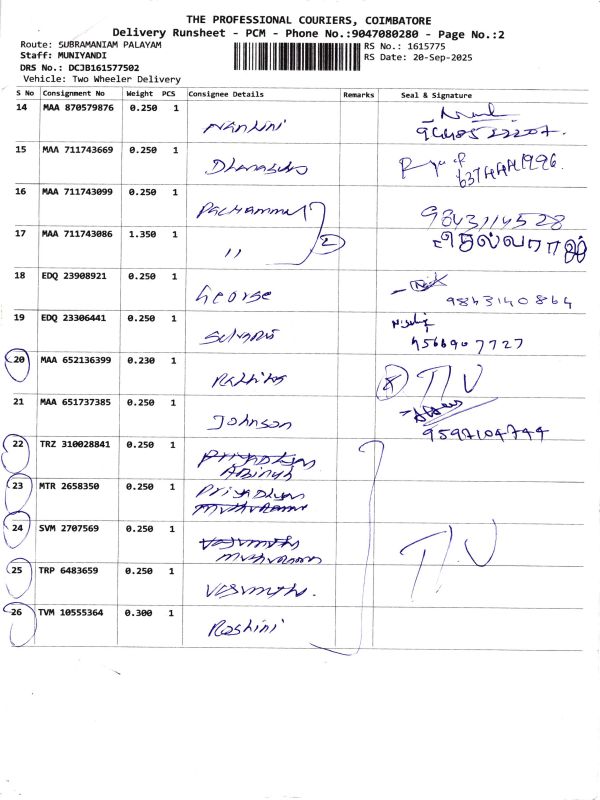 THE PROFESSIONAL COURIERS, COIMBATORE
Delivery Runsheet - PCM - Phone No.:9047080280 - Page No.:2
Route: SUBRAMANIAM PALAYAM RS No.: 1615775
Staff: MUNIYANDI RS Date: 20-Sep-2025
DRS No.: DCJB161577502
Vehicle: Two Wheeler Delivery
S No Consignment No Weight PCS Consignee Details Remarks Seal & Signature
14 MAA 870579876 0.250 1 Nandini
15 MAA 711743669 0.250 1
16 MAA 711743099 0.250 1 9843114528
17 MAA 711743086 1.350 1 " 2
18 EDQ 23908921 0.250 1 George 9843140864
19 EDQ 23306441 0.250 1 9566907727
20 MAA 652136399 0.230 1 T/V
21 MAA 651737385 0.250 1 Johnson 9597104744
22 TRZ 310028841 0.250 1
23 MTR 2658350 0.250 1
24 SVM 2707569 0.250 1 T/V
25 TRP 6483659 0.250 1
26 TVM 10555364 0.300 1 Roshini